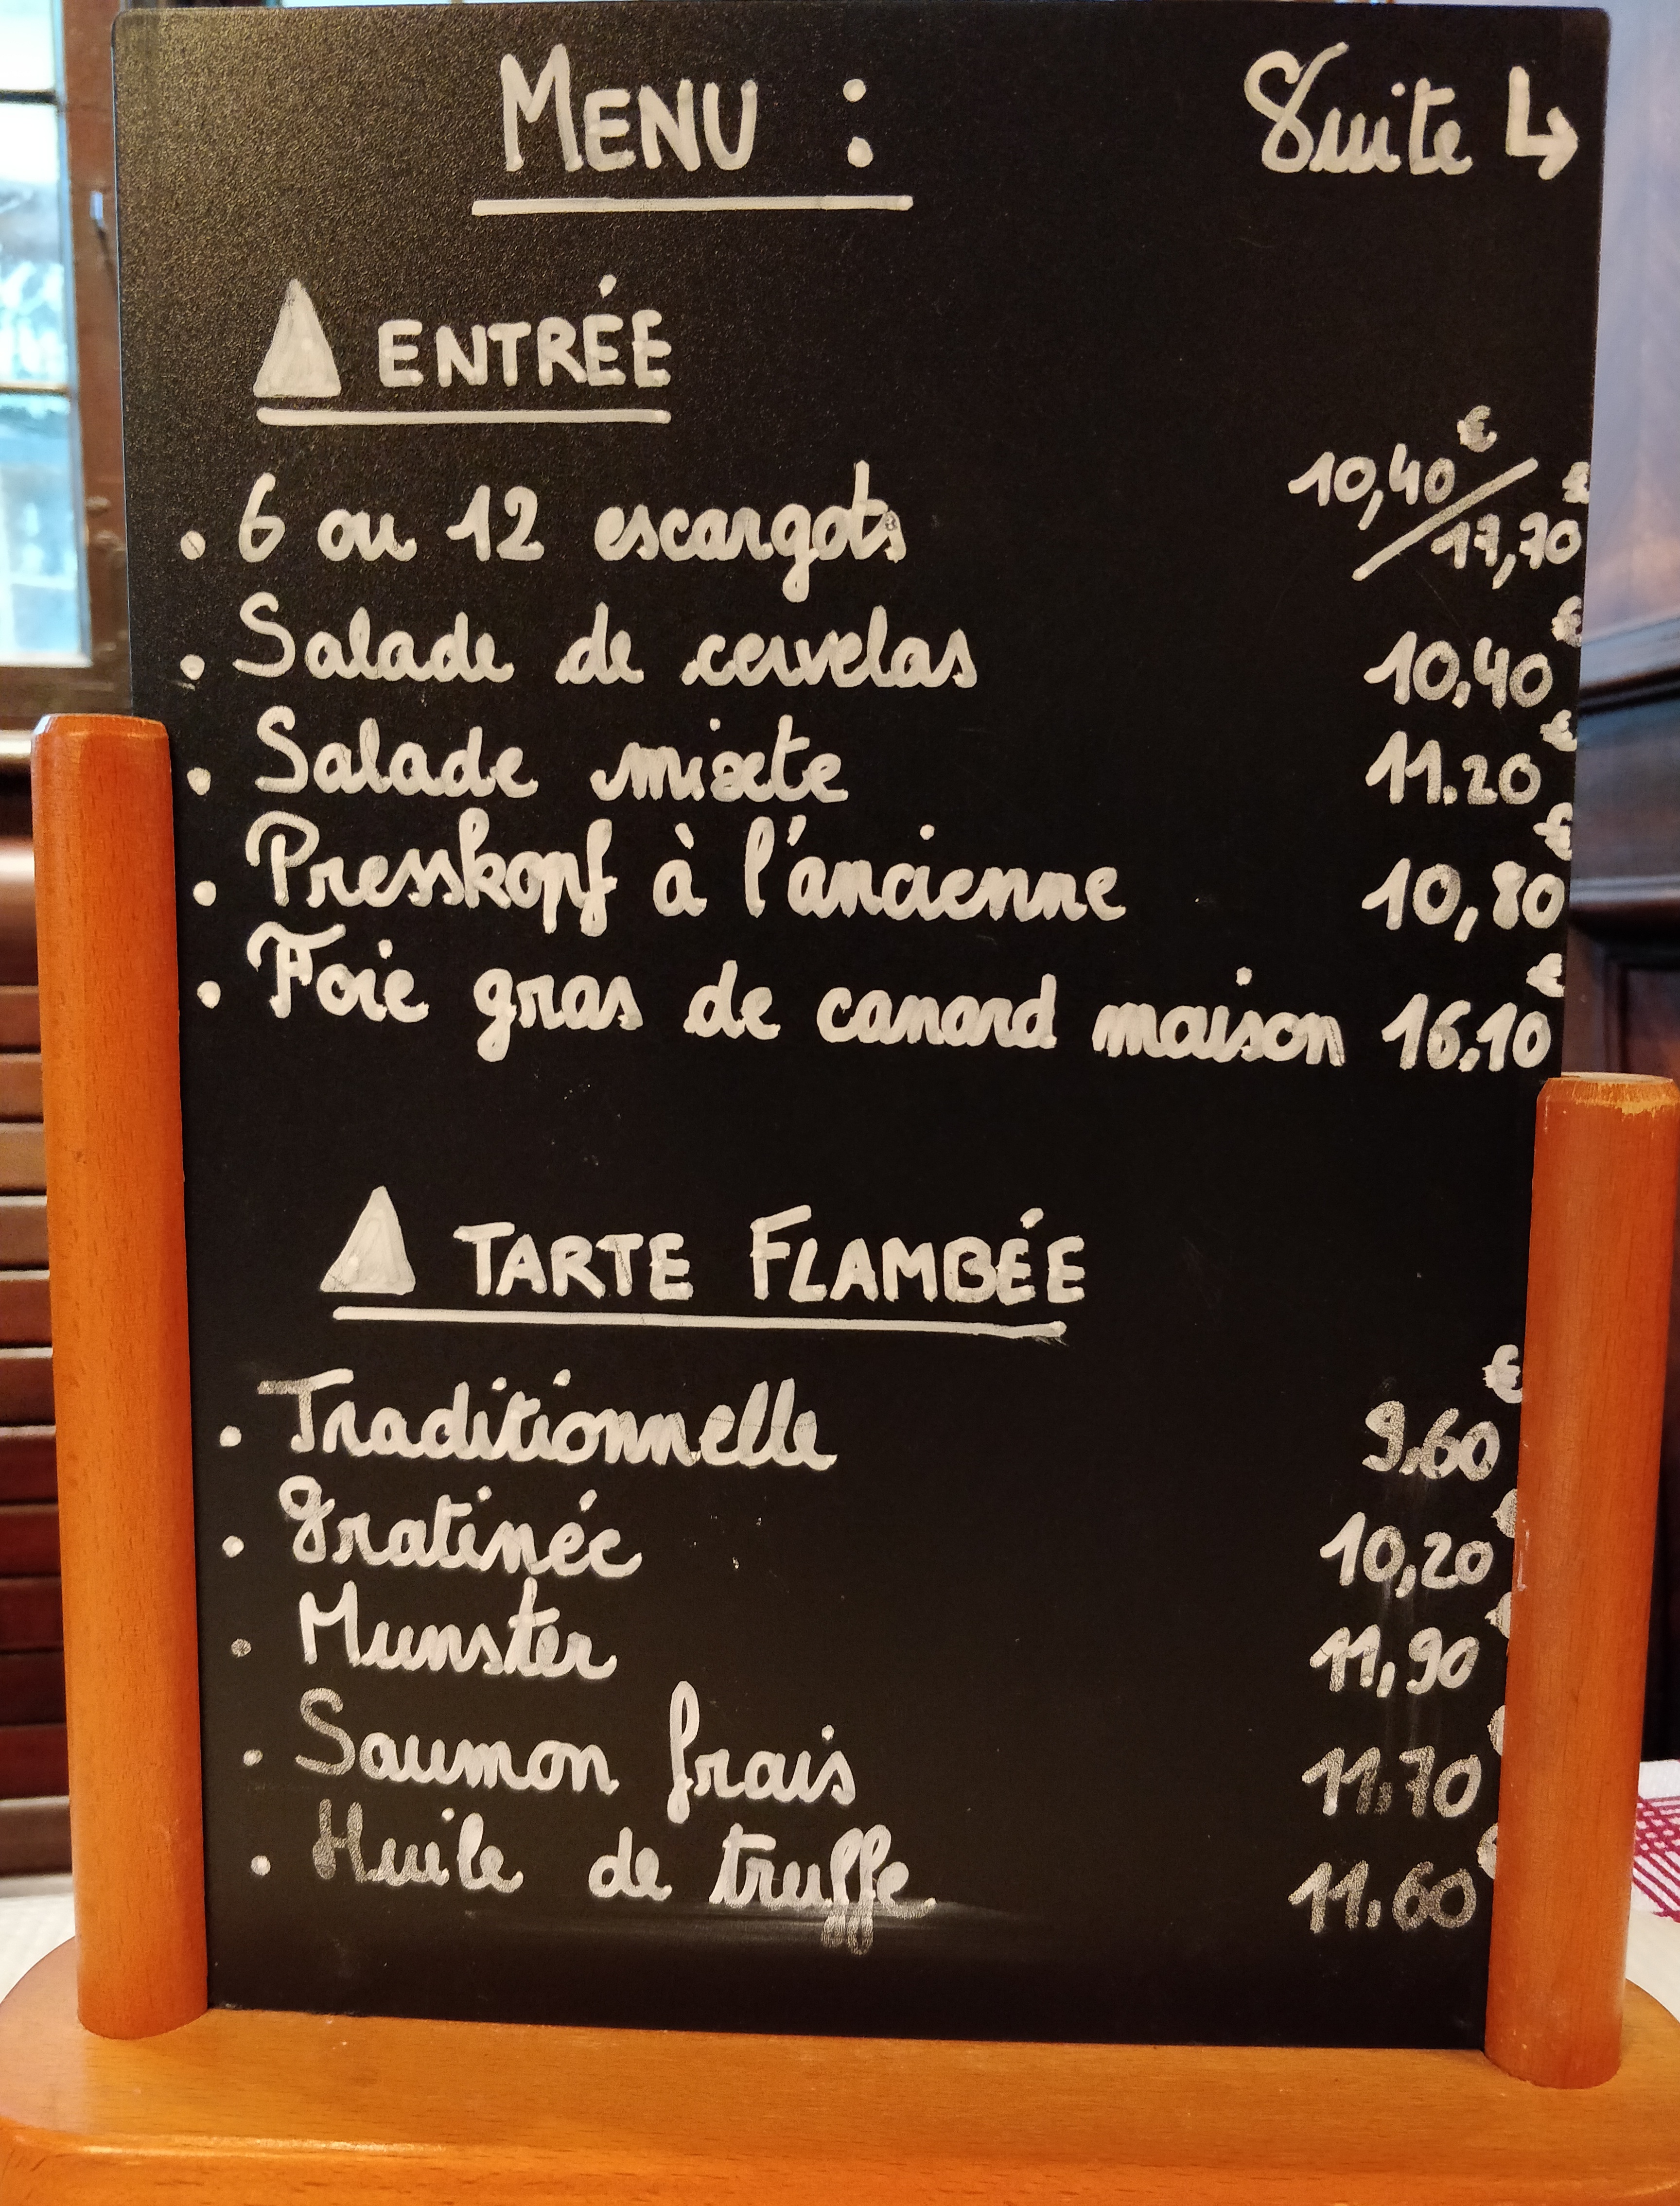 MENU : Suite ↳
ENTRÉE
• 6 ou 12 escargots 10,40€/17,70€
• Salade de cervelas 10,40€
• Salade mixte 11.20€
• Presskopf à l'ancienne 10,80€
• Foie gras de canard maison 16.10€
TARTE FLAMBÉE
• Traditionnelle 9,60€
• Gratinée 10,20€
• Munster 11,90€
• Saumon frais 11,70€
• Huile de truffe 11.60€